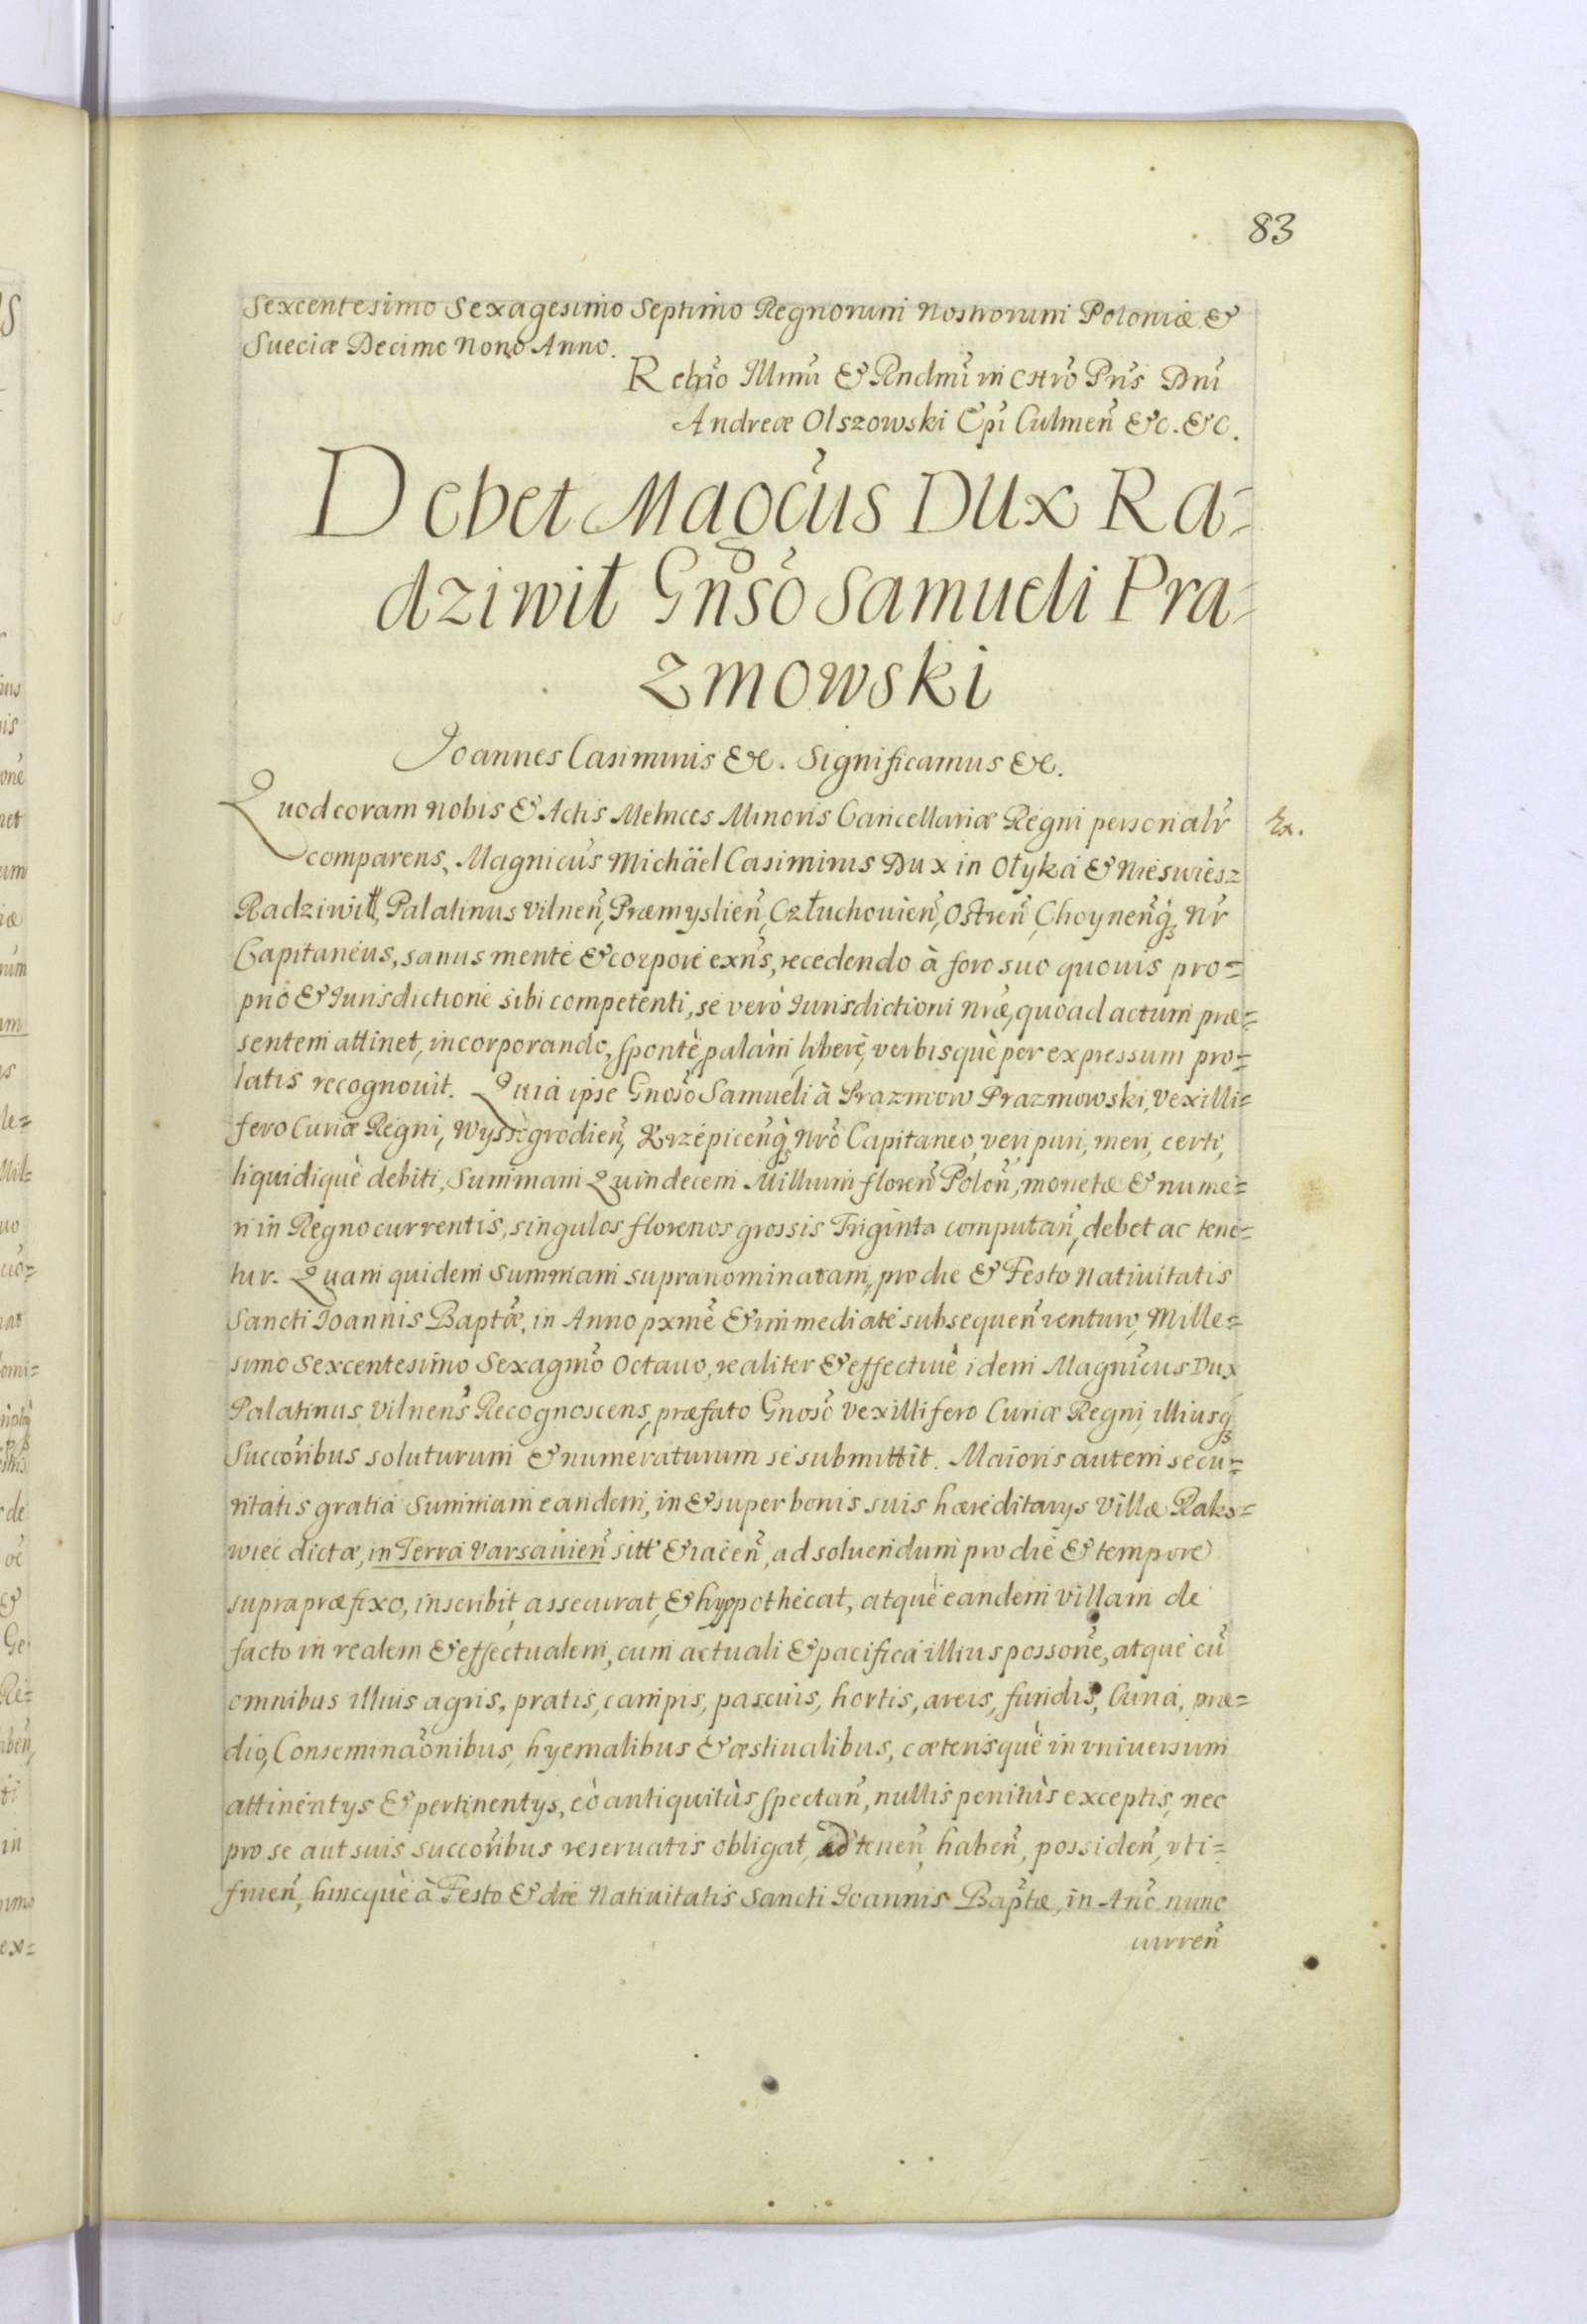 83
Sexcentesimo Sexagesimo Septimo Regnorum Nostrorum Poloniæ &
Sueciæ Decimo Nono Anno.
Relño Illmi & Rndmi in Chro Pris Dni
Andreæ Olszowski Epi Culmeñ &c. &c.
Debet Magcus Dux Ra=
dziwił Gnso Samueli Pra=
zmowski
Joannes Casimirus &c. Significamus &c.
Quod coram nobis & Actis Metrices Minoris Cancellariæ Regni personalr
comparens, Magnicus Michäel Casimirus Dux in Ołyka & Nieswiesz
Radziwił, Palatinus Vilneñ, Præmyslieñ, Człuchovieñ, Ostreñ, Choyneñq, Nr
Capitaneus, sanus mente & corpore exns, recedendo à foro suo quovis pro=
prio & Iurisdictione sibi competenti, se verò Iurisdictioni nræ, quoad actum præ=
sentem attinet, incorporando, spontè, palàm, liberè, verbisquè per expressum pro=
latis recognovit. Quia ipse Gnoso Samueli à Prazmow Prazmowski, Vexilli=
fero Curiæ Regni, Wyssogrodieñ, Krzépiceñq, Nro Capitaneo, veri puri, meri, certi,
liquidiquè debiti, Summam Quindecem Millium floreñ Poloñ, monetæ & nume=
ri in Regno currentis, singulos florenos grossis Triginta computañ, debet ac tene=
tur. Quam quidem Summam supranominatam, pro die & Festo Nativitatis
Sancti Ioannis Baptæ, in Anno pxme & immediatè subsequeñ venturo, Mille=
simo Sexcentesimo Sexagmo Octavo, realiter & effectivè idem Magnicus Dux
Palatinus Vilneñs Recognoscens, præfato Gnoso Vexillifero Curiæ Regni, illiusq
Succoribus soluturum & numeraturum se submittit. Maioris autem secu=
ritatis gratia Summam eandem, in & super bonis suis hæreditarys Villæ Rako=
wiec dictæ, in Terra Varsavieñ sitt & iaceñ, ad solvendum pro die & tempore
supra præfixo, inscribit, assecurat, & hyppothecat, atquè eandem villam de
facto in realem & effectualem, cum actuali & pacifica illius possone, atque cu
omnibus illius agris, pratis, campis, pascuis, hortis, areis, fundis, Curia, præ=
dio, Conseminaonibus, hyemalibus & æstivalibus, cæterisquè in vniversum
attinentys & pertinentys, eò antiquitùs spectañ, nullis penitùs exceptis, nec
pro se aut suis succoribus reservatis obligat, ad teneñ, habeñ, possideñ, vti=
frueñ, hincquè à Festo & die Nativitatis Sancti Ioannis Baptæ, in Ano nunc
curreñ